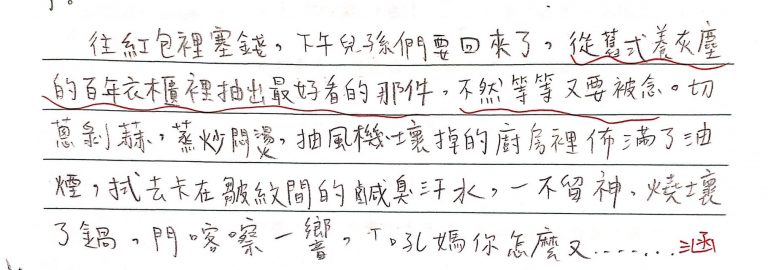 往紅包裡塞錢，下午兒孫們要回來了，從舊式養灰塵
的百年衣櫃裡抽出最好看的那件，不然等等又要被念。切
蔥剝蒜，蒸炒悶燙，抽風機壞掉的廚房裡佈滿了油
煙，拭去卡在皺紋間的鹹臭汗水，一不留神，燒壞
了鍋，門喀嚓一響，「吼媽你怎麼又......